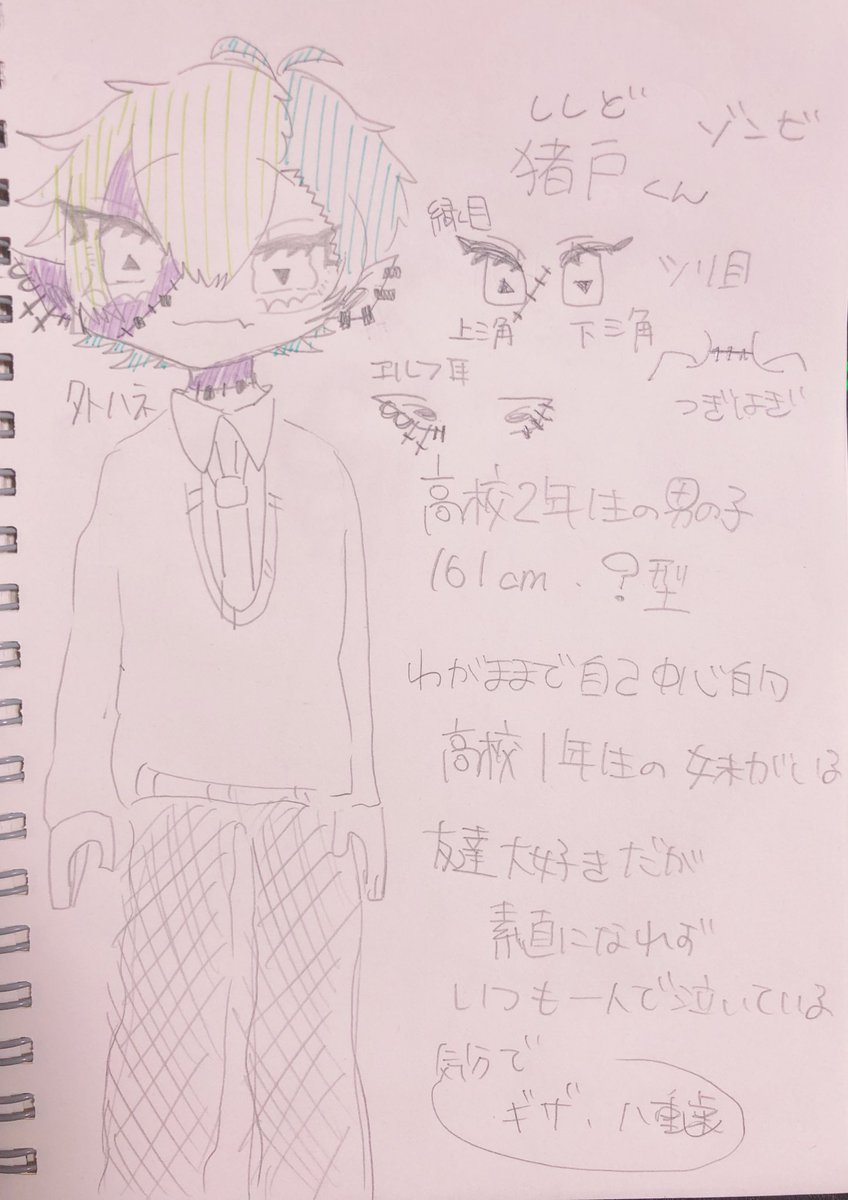 ししど
猪戸くん
ゾンビ
縁目
ツリ目
上三角
下三角
エルフ耳
つぎはぎ
外ハネ
高校2年生の男の子
161cm.?型
わがままで自己中心的
高校1年生の妹がいる
友達大好きだが
素直になれず
いつも一人で泣いている
気分で
ギザ、八重歯